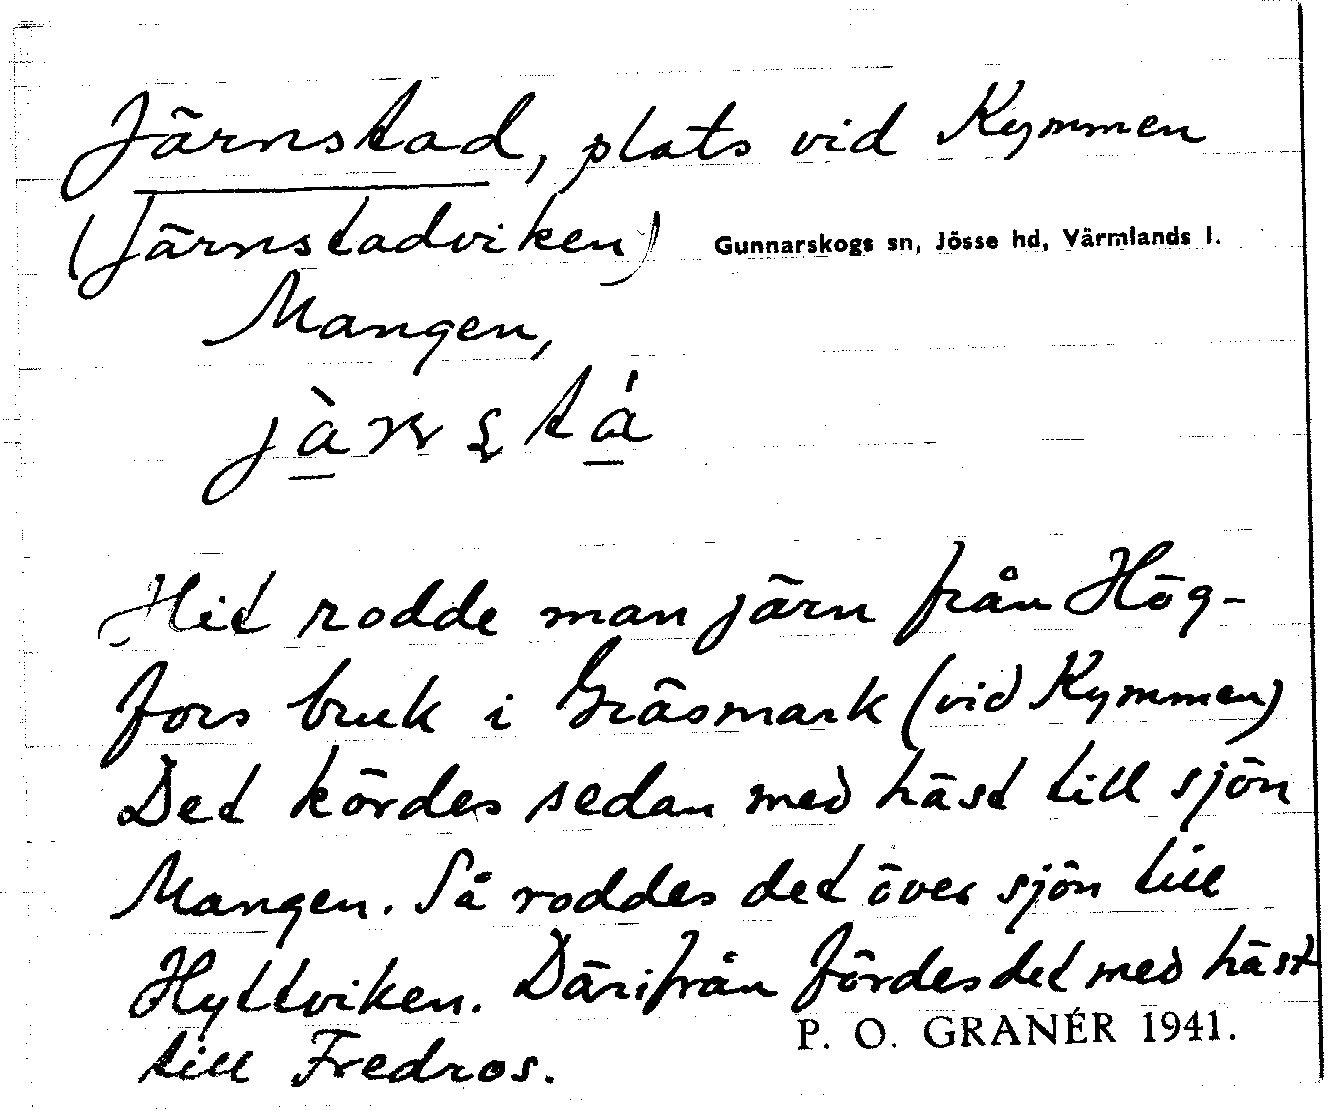 Järnstad, plats vid Kymmen
(Järnstadviken) Gunnarskogs sn, Jösse hd, Värmlands l.
Mangen,
Hit rodde man järn från Hög-
fors bruk i Gräsmark (vid Kymmen)
Det kördes sedan med häst till sjön
Mangen. Så roddes det över sjön till
Hyttviken. Därifrån fördes det med häst
till Fredros.
P. O. GRANÉR 1941.